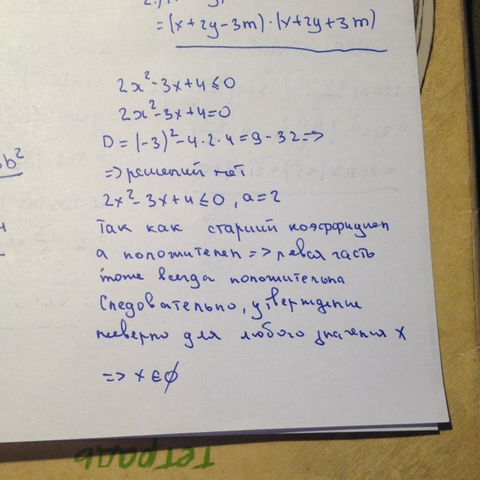 = (x+2y-3m)·(x+2y+3m)
2x²-3x+4≤0
2x²-3x+4=0
D=(-3)²-4·2·4=9-32=>
=>решений нет
2x²-3x+4≤0, a=2
так как старший коэффициен
a положителен => левая часть
тоже всегда положительна
Следовательно, утверждение
неверно для любого значения x
=> x∈∅
b²
тетрадь